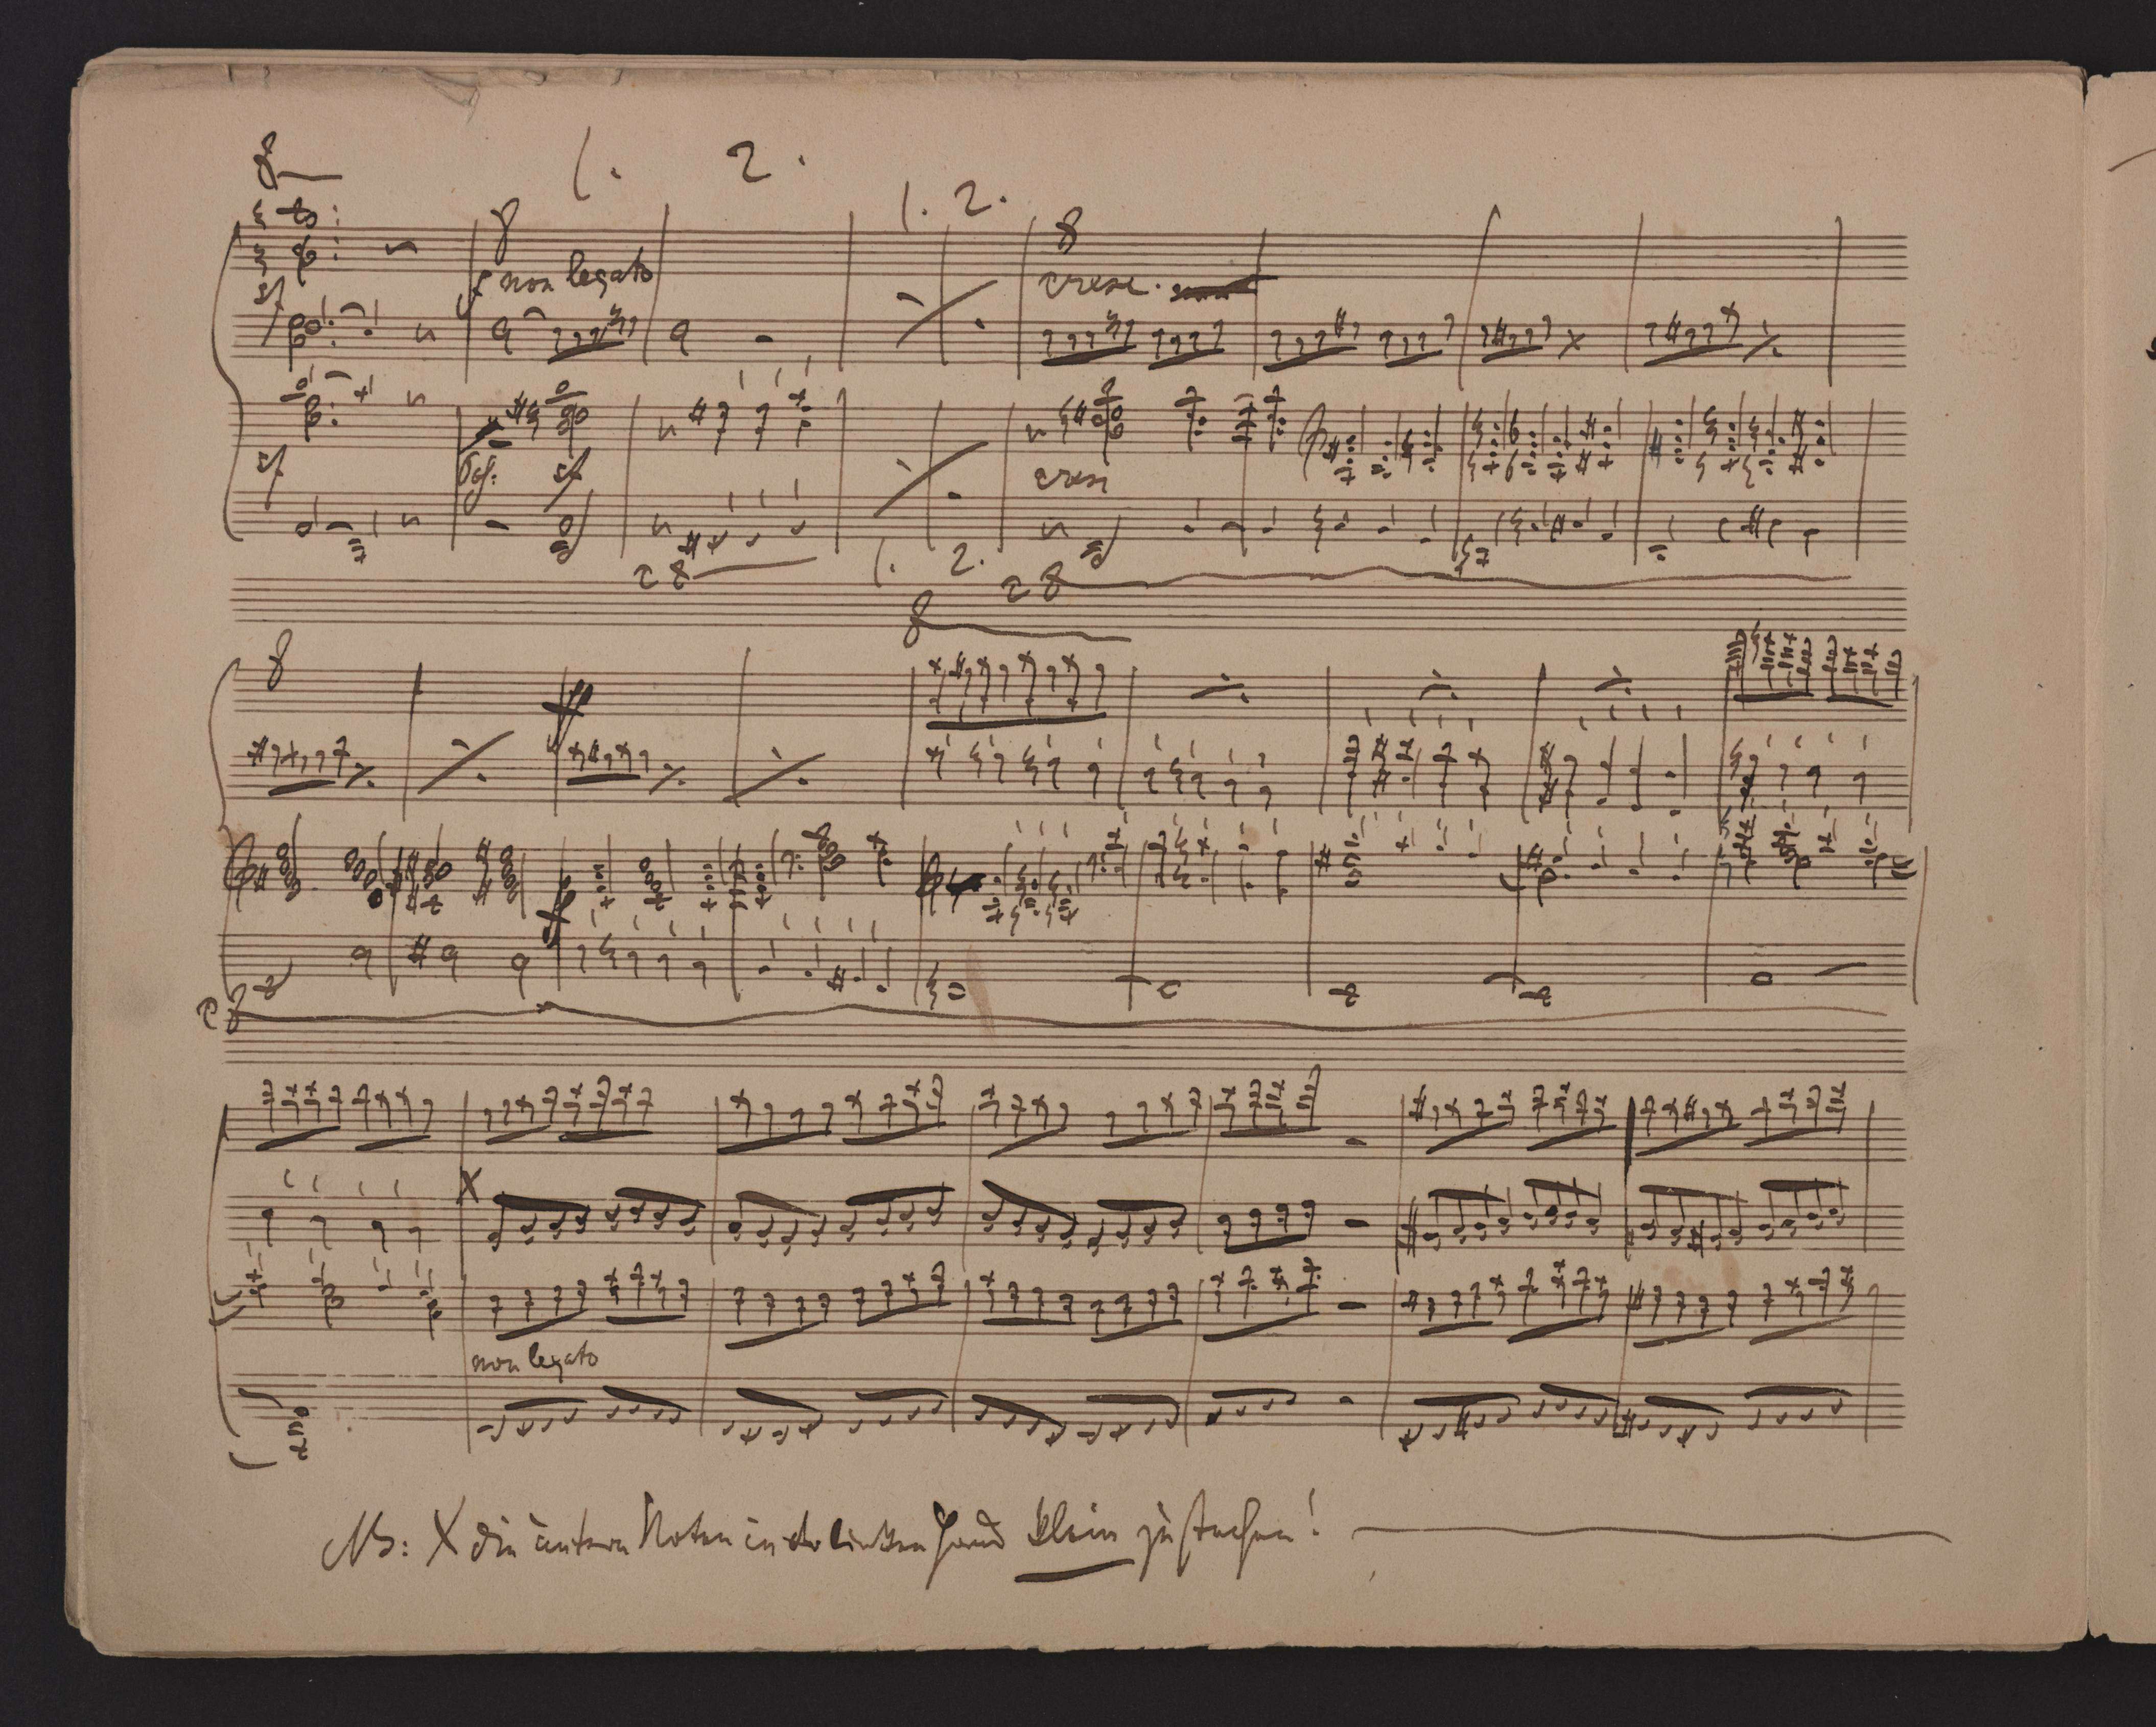 8
1. 2.
1. 2.
8 8
f non legato cresc.
sf
sf sf cresc
1. 2.
28 28
8
8
ff
f
8
X
non legato
NB: X die untern Noten in der linken Hand klein zu stechen!